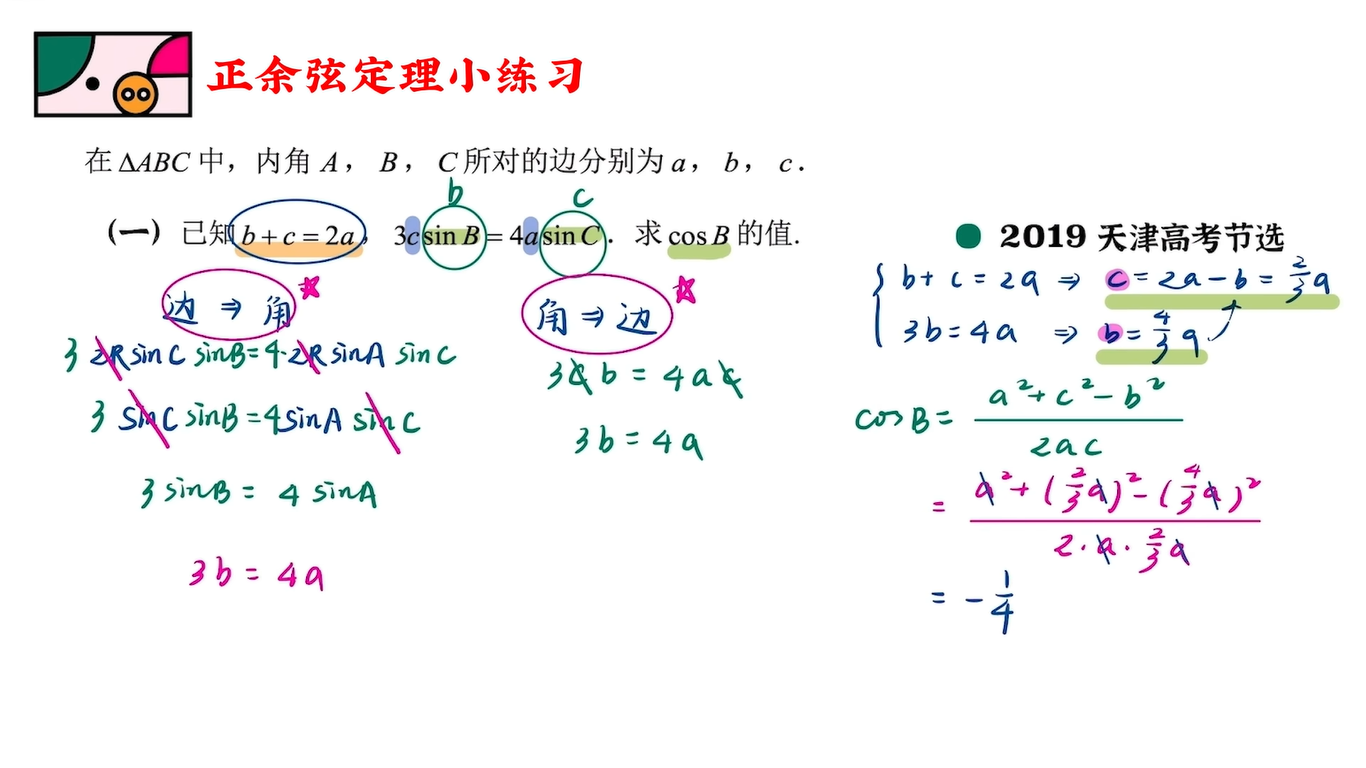 正余弦定理小练习
在 ΔABC 中，内角 A，B，C 所对的边分别为 a，b，c．
b c
(一) 已知 b+c=2a，3c sin B=4a sin C．求 cos B 的值.
边 ⇒ 角
3 2R sinC sinB=4·2R sinA sinC
3 sinC sinB=4sinA sinC
3 sinB = 4 sinA
3b = 4a
角 ⇒ 边
3c b = 4a c
3b = 4a
2019 天津高考节选
b+c=2a ⇒ c=2a-b=2/3 a
3b=4a ⇒ b=4/3 a
cosB= (a²+c²-b²)/(2ac)
= (a²+(2/3 a)²-(4/3 a)²)/(2·a·2/3 a)
= -1/4